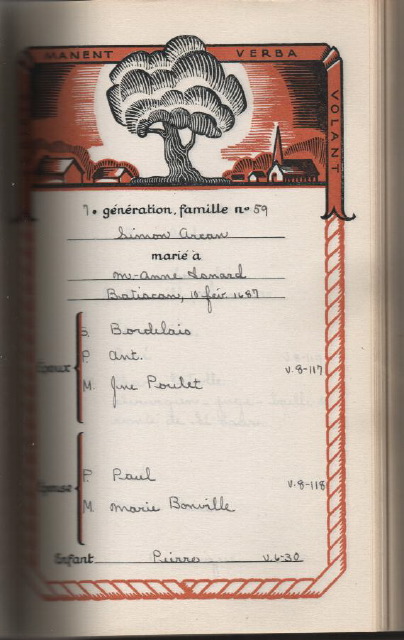 MANENT VERBA VOLANT
7e génération, famille no 59
Simon Arcan
marié à
m-Anne Isnard
Batiscan, 10 fév. 1687
S. Bordelais
P. Ant.
Époux V.8-117
M. Jne Poulet
P. Paul
Épouse V.8-118
M. Marie Bonville
Enfant Pierre V.6-30